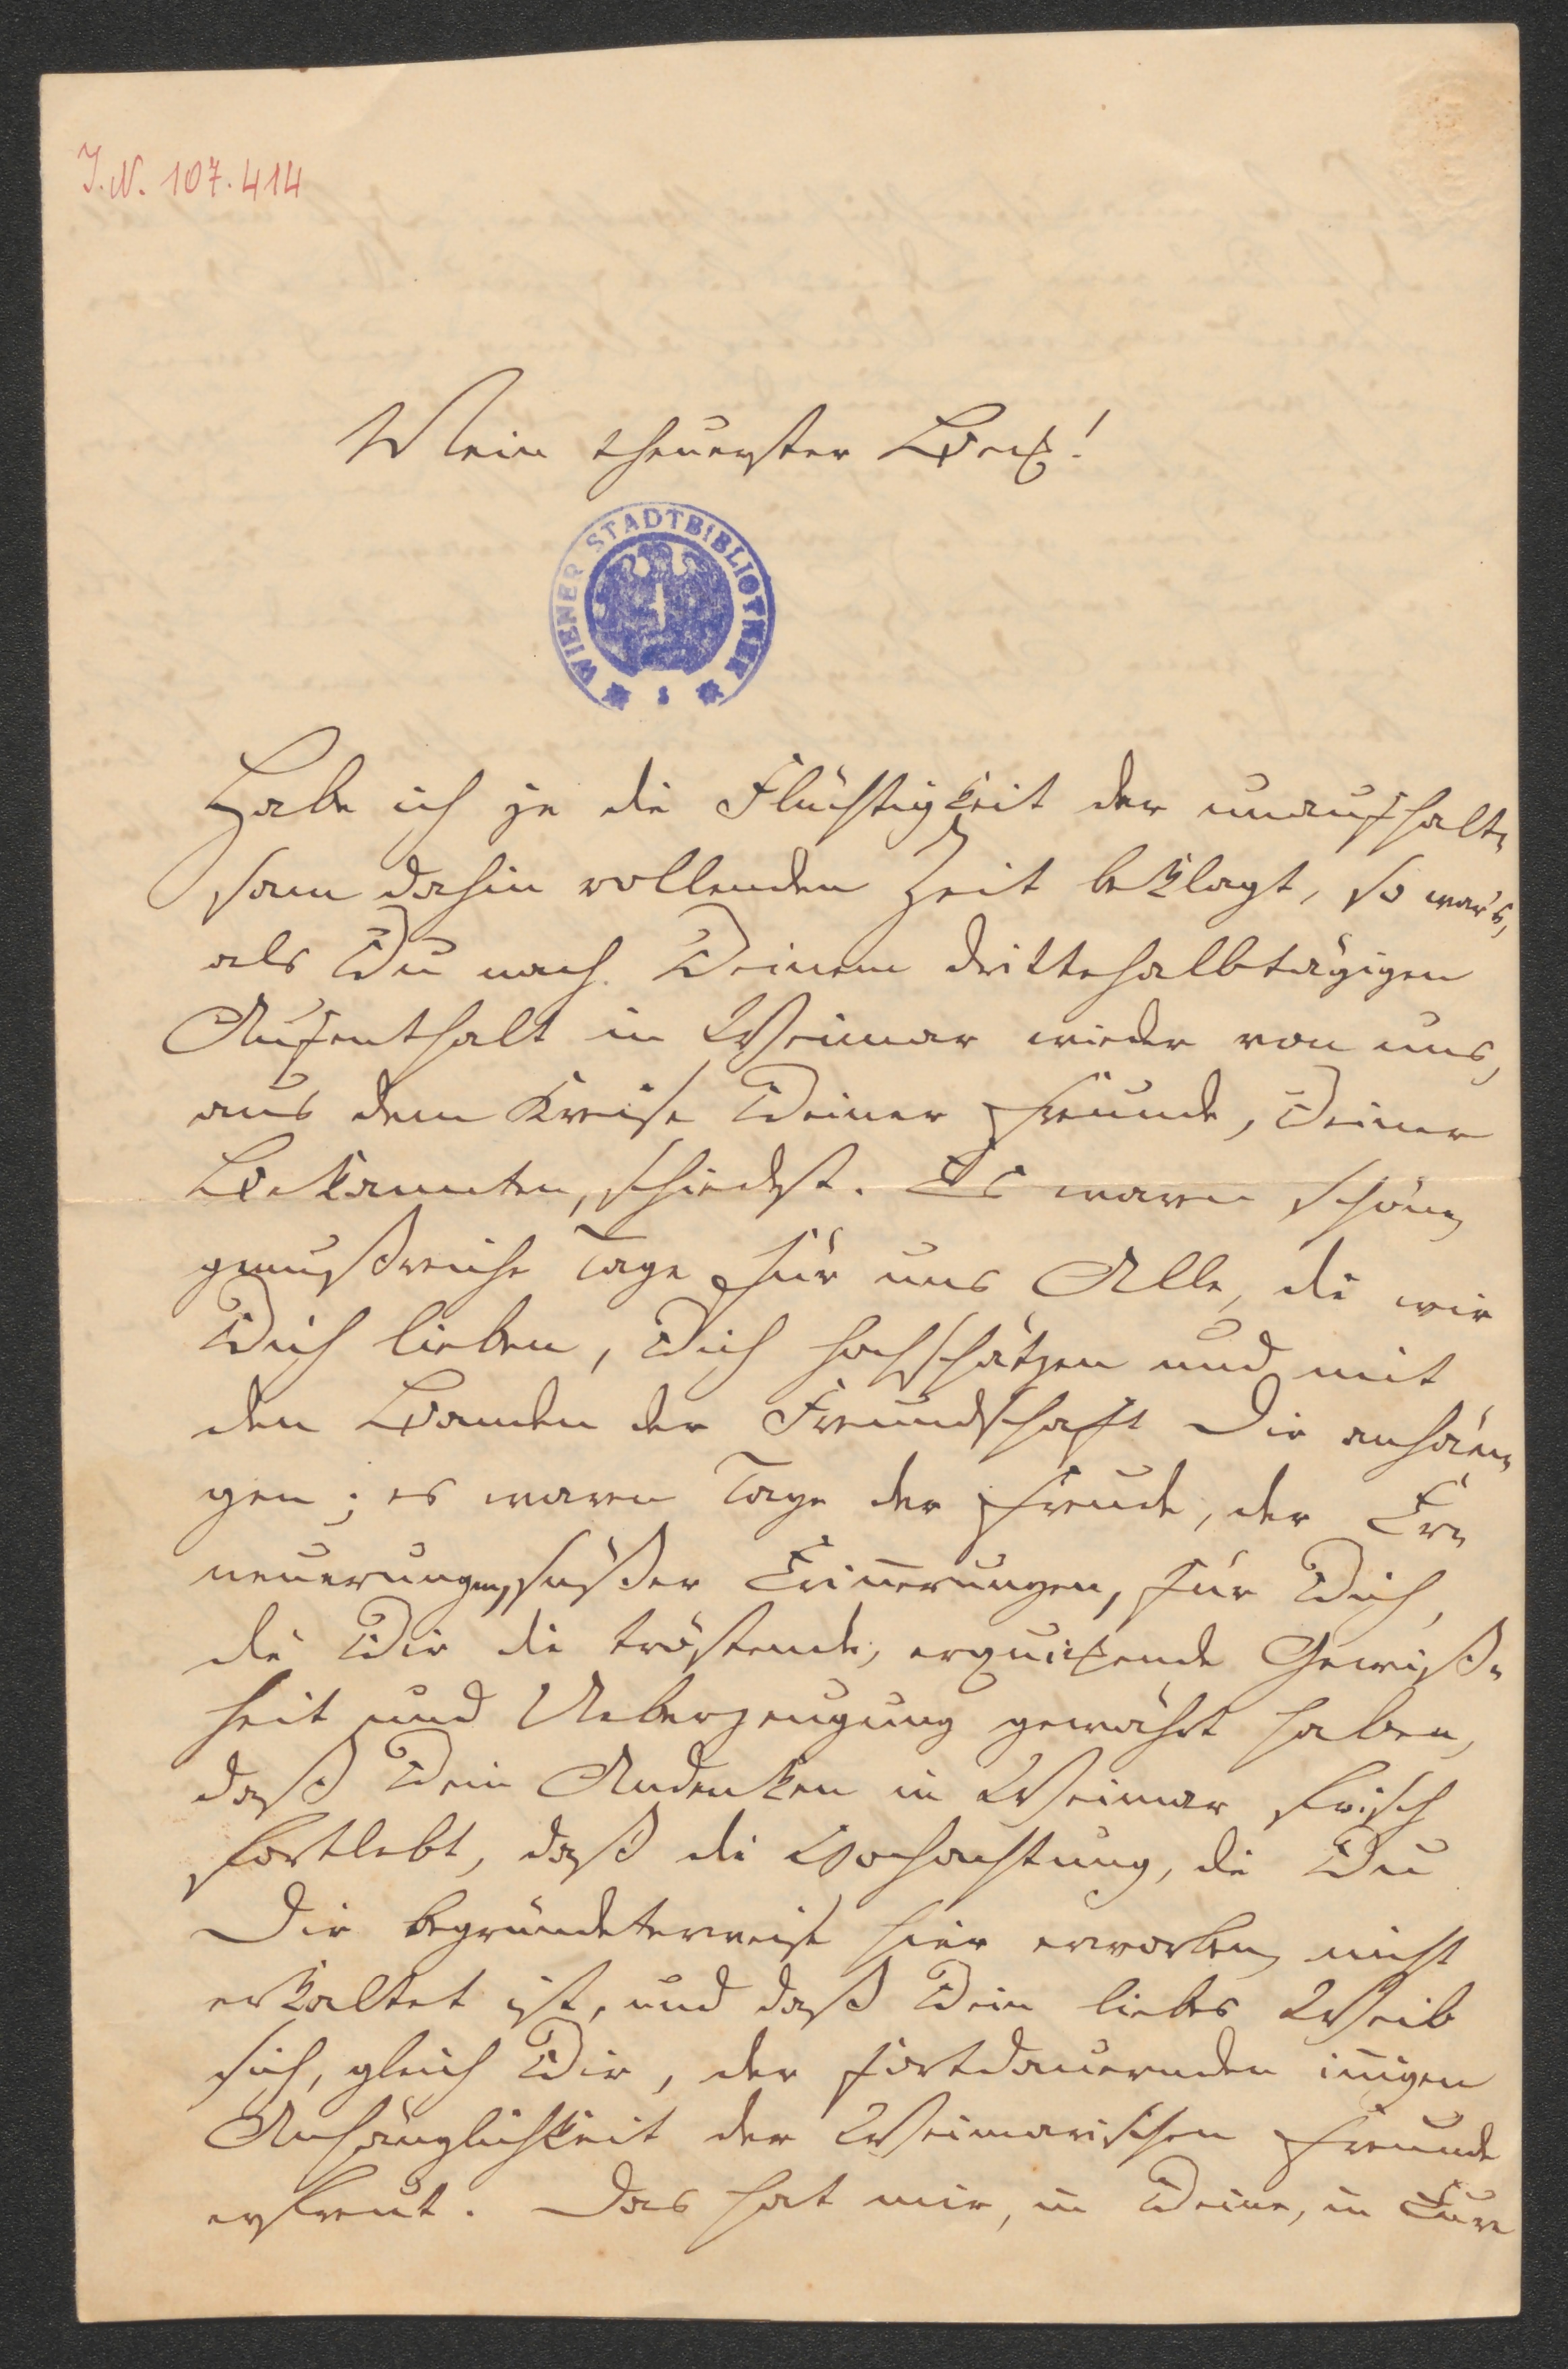 J. N. 107.414
Mein theuerster Beck!
WIENER STADTBIBLIOTHEK
Habe ich je die Flüchtigkeit der unaufhalt-
sam dahin rollenden Zeit beklagt, so war's,
als Du nach Deinem drittehalbtägigen
Aufenthalt in Weimar wieder von uns,
aus dem Kreise Deiner Freunde, Deiner
Bekannten, schiedst. Es waren schöne,
genußreiche Tage für uns Alle, die wir
Dich lieben, Dich hochschätzen und mit
den Banden der Freundschaft Dir anhän-
gen; es waren Tage der Freude, der Er-
neuerungen süßer Erin̄erungen, für Dich,
die Dir die tröstende, erquickende Gewiß-
heit und Ueberzeugung gewährt haben,
daß Dein Andenken in Weimar frisch
fortlebt, daß die Hochachtung, die Du
Dir begründeterweise hier erworben, nicht
erkaltet ist, und daß Dein liebes Weib
sich, gleich Dir, der fortdauernden in̄igen
Anhänglichkeit der Weimarischen Freunde
erfreut. Das hat mir, in Deine, in Eure